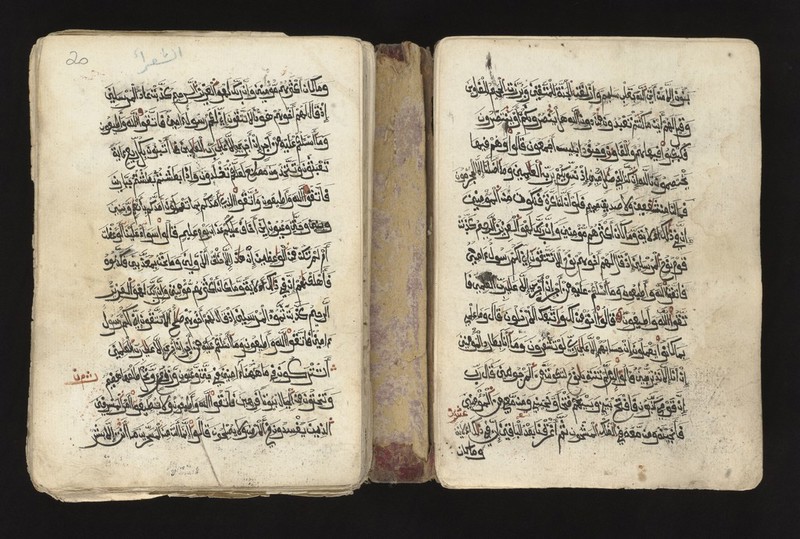 بنون الا من اتى الله بقلب سليم وازلفت الجنة للمتقين وبرزت الجحيم للغاوين
وقيل لهم اين ما كنتم تعبدون من دون الله هل ينصرونكم او ينتصرون
فكبكبوا فيها هم والغاون وجنود ابليس اجمعون قالوا وهم فيها
يختصمون تالله ان كنا لفي ضلل مبين اذ نسويكم برب العلمين وما اضلنا الا المجرمون
فما لنا من شفعين ولا صديق حميم فلو ان لنا كرة فنكون من المومنين
ان في ذلك لاية وما كان اكثرهم مومنين وان ربك لهو العزيز الرحيم كذبت
قوم نوح المرسلين اذ قال لهم اخوهم نوح الا تتقون اني لكم رسول امين
فاتقوا الله واطيعون وما اسئلكم عليه من اجر ان اجري الا على رب العلمين فا
تقوا الله واطيعون قالوا انومن لك واتبعك الارذلون قال وما علمي
بما كانوا يعملون ان حسابهم الا على ربي لو تشعرون وما انا بطارد المومنين
ان انا الا نذير مبين قالوا لئن لم تنته ينوح لتكونن من المرجومين قال رب
ان قومي كذبون فافتح بيني وبينهم فتحا ونجني ومن معي من المومنين
عشر
فانجينه ومن معه في الفلك المشحون ثم اغرقنا بعد الباقين ان في ذلك لاية
وما كان
الشعراء
وما كان اكثرهم مومنين وان ربك لهو العزيز الرحيم كذبت عاد المرسلين
اذ قال لهم اخوهم هود الا تتقون اني لكم رسول امين فاتقوا الله واطيعون
وما اسئلكم عليه من اجر ان اجري الا على رب العلمين اتبنون بكل ريع اية
تعبثون وتتخذون مصانع لعلكم تخلدون واذا بطشتم بطشتم جبارين
فاتقوا الله واطيعون واتقوا الذي امدكم بما تعلمون امدكم بانعم وبنين
وجنت وعيون اني اخاف عليكم عذاب يوم عظيم قالوا سواء علينا اوعظت
ام لم تكن من الوعظين ان هذا الا خلق الاولين وما نحن بمعذبين فكذبوه
فاهلكنهم ان في ذلك لاية وما كان اكثرهم مومنين وان ربك لهو العزيز
الرحيم كذبت ثمود المرسلين اذ قال لهم اخوهم صلح الا تتقون اني لكم رسول
امين فاتقوا الله واطيعون وما اسئلكم عليه من اجر ان اجري الا على رب العلمين
اتتركون في ما ههنا امنين في جنت وعيون وزروع ونخل طلعها هضيم
ثمن
وتنحتون من الجبال بيوتا فرهين فاتقوا الله واطيعون ولا تطيعوا امر المسرفين
الذين يفسدون في الارض ولا يصلحون قالوا انما انت من المسحرين ما انت الا بشر